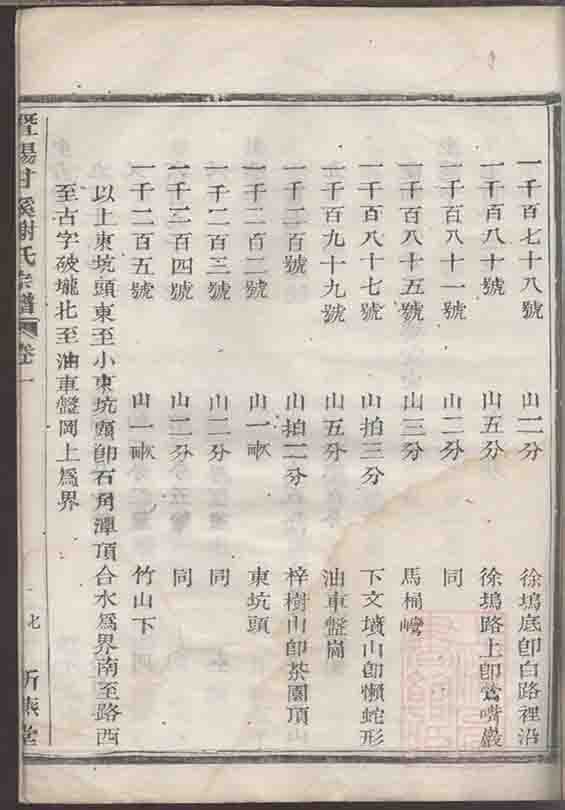 一千百七十八號　山二分　徐塢底卽白路裡沿
一千百八十號　山五分　徐塢路上卽鶯嘴巖
一千百八十一號　山二分　同
一千百八十五號　山三分　馬桶
一千百八十七號　山拍三分　下文墳山卽懶蛇形
一千百九十九號　山五分　油車盤崗
一千二百號　山拍二分　梓樹山卽茶園頂山
一千二百二號　山一畝　東坑頭
一千二百三號　山二分　同
一千二百四號　山二分　同
一千二百五號　山一畝　竹山下
以上東坑頭東至小東坑頭卽石角潭頂合水爲界南至路西
至古字破壠北至油車盤岡上爲界
暨陽甘溪謝氏宗譜　卷一